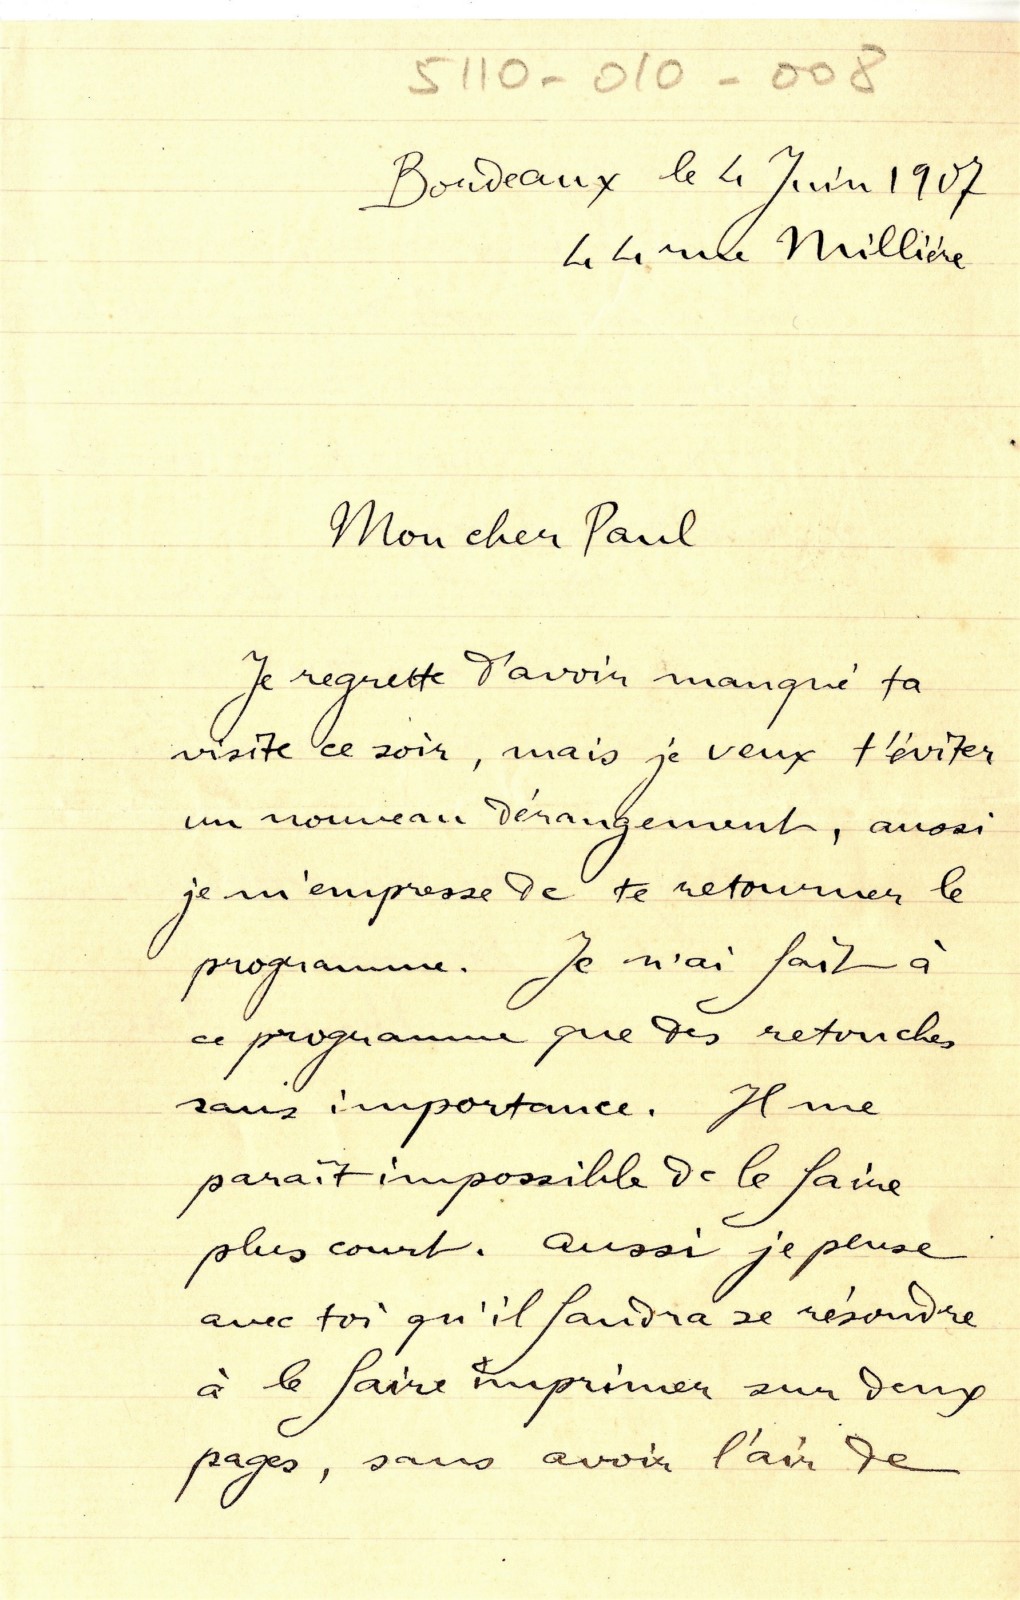 5110-010-008
Bordeaux le 4 Juin 1907
44 rue Millière
Mon cher Paul
Je regrette d'avoir manqué ta
visite ce soir, mais je veux t'éviter
un nouveau dérangement, aussi
je m'empresse de te retourner le
programme. Je n'ai fait à
ce programme que des retouches
sans importance. Il me
paraît impossible de le faire
plus court. Aussi je pense
avec toi qu'il faudra se résoudre
à le faire imprimer sur deux
pages, sans avoir l'air de